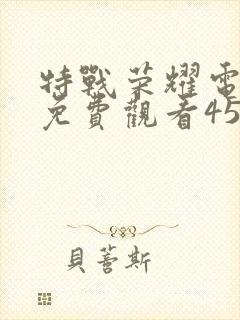 特戰荣耀電
免費觀看45
貝蕾斯